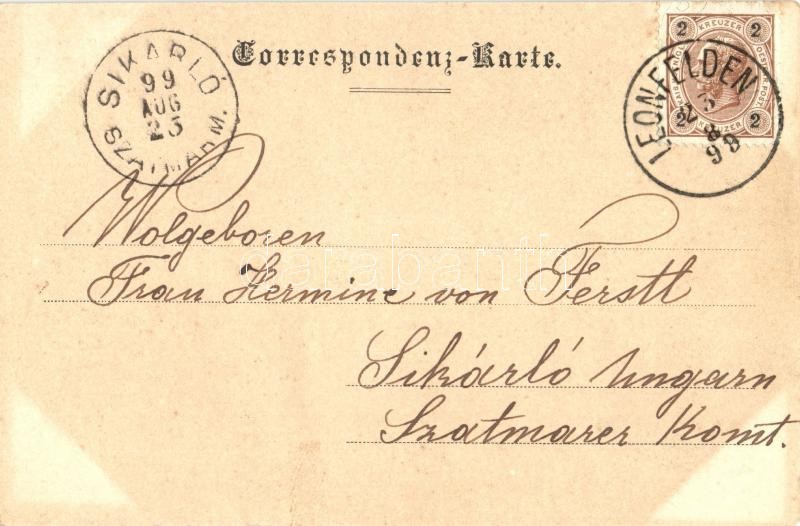 Correspondenz-Karte.
SIKARLÓ
99
AUG
23
SZATMÁR M.
2 KREUZER 2
2 KREUZER 2
LEONFELDEN
98
Wolgeboren
Frau Hermine von Ferstl
Sikárló Ungarn
Szatmarer Komt.